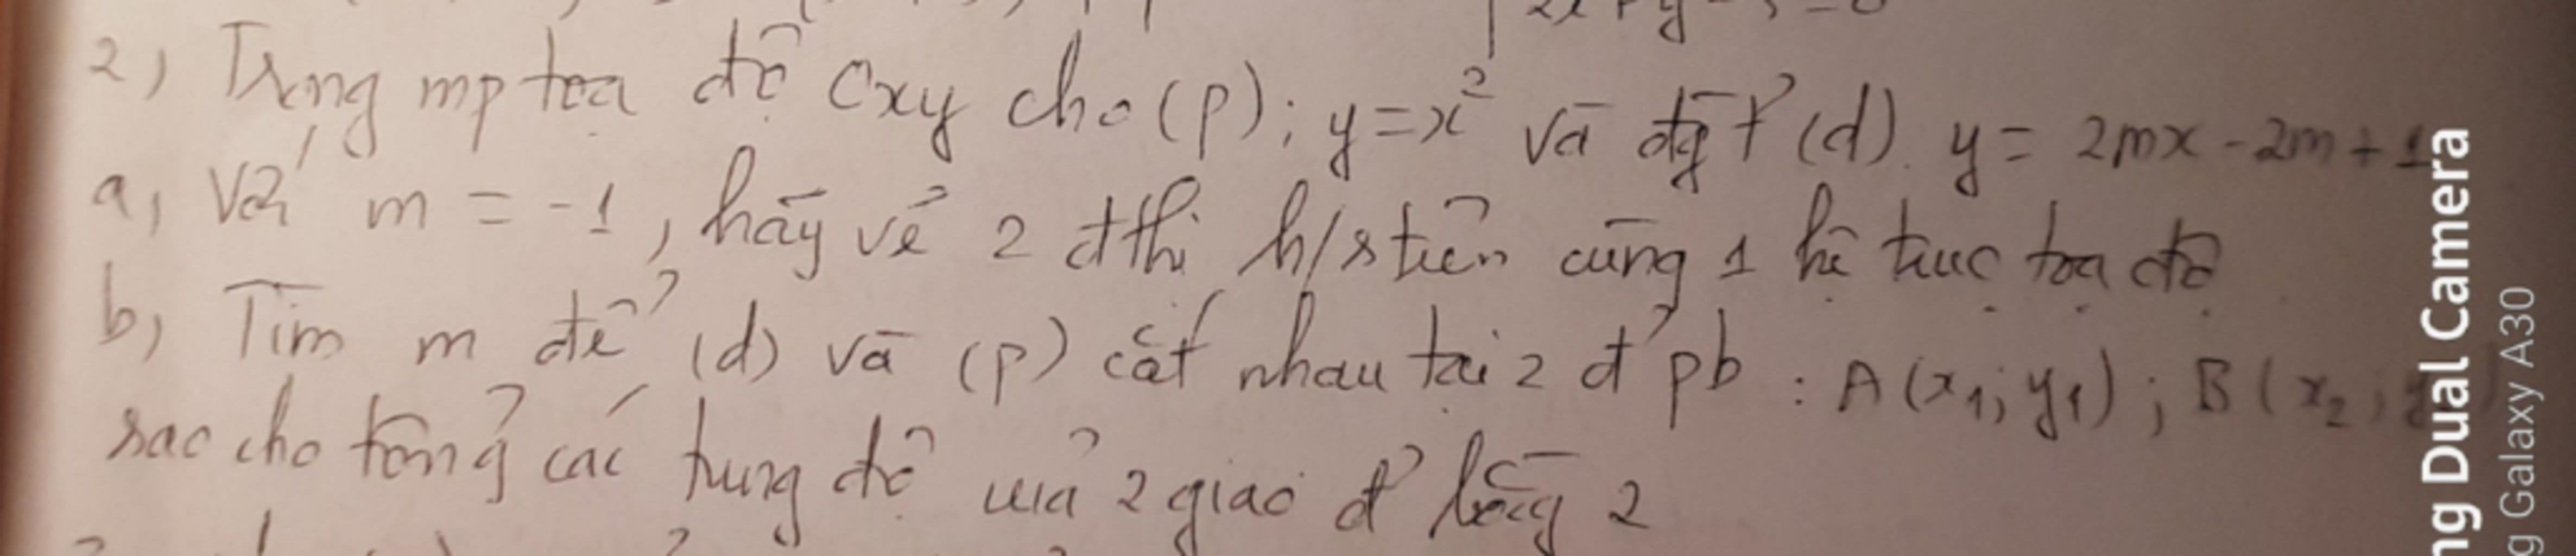 2) Trong mp tọa độ Oxy cho (P): y = x² và đg t² (d) y = 2mx - 2m + 1
a, Với m = -1, hãy vẽ 2 đ thị h/s trên cùng 1 hệ trục tọa độ
b, Tìm m để (d) và (P) cắt nhau tại 2 đ² pb : A(x₁; y₁); B(x₂;
sao cho tổng các tung độ của 2 giao đ² bằng 2
ng Dual Camera
g Galaxy A30